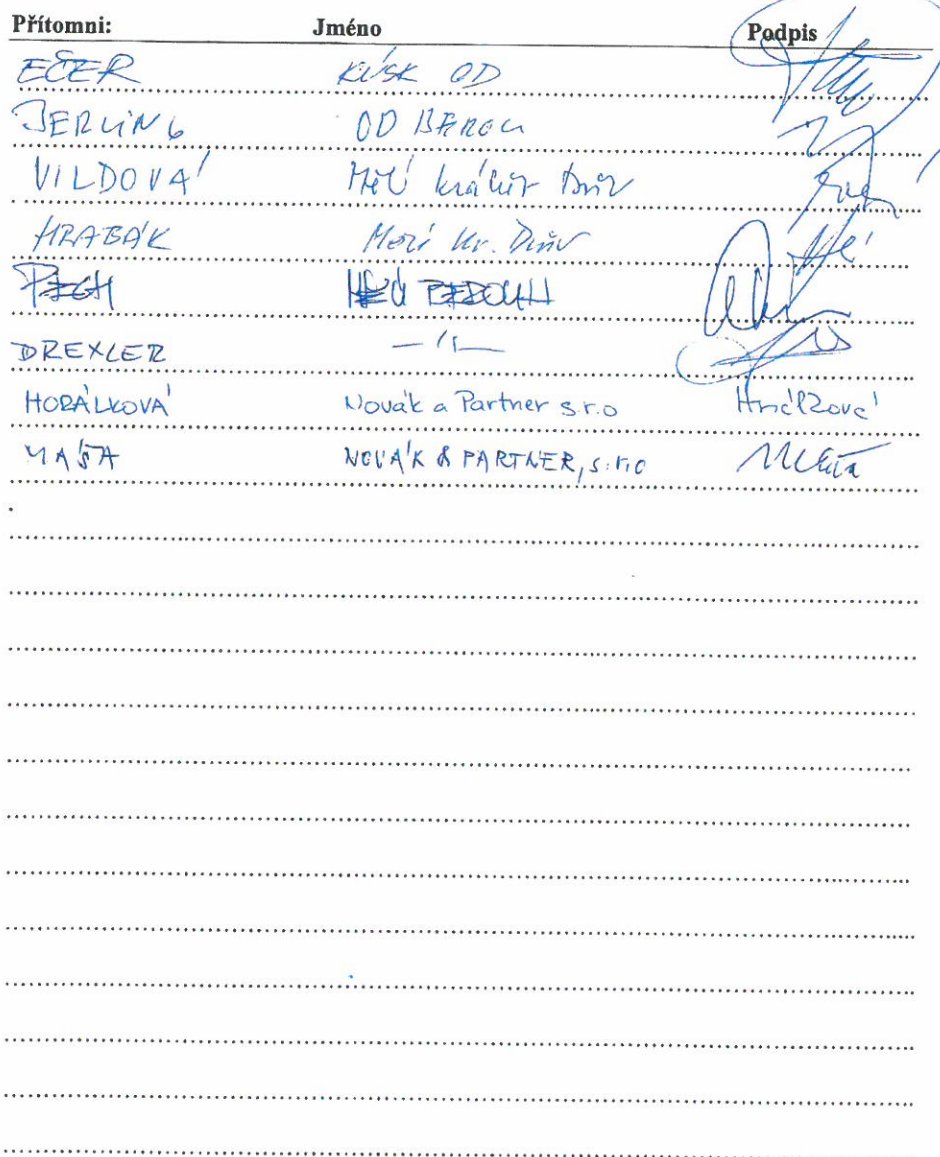 Přítomni: Jméno Podpis
EČER KÚSK OD
JERLING OD BEROUN
VILDOVÁ MěÚ Králův Dvůr
HRABÁK Dvůr
PECH MěÚ BEROUN
DREXLER —"—
HORÁLKOVÁ Novák a Partner s.r.o Horálková
MÁŠA NOVÁK & PARTNER, s.r.o